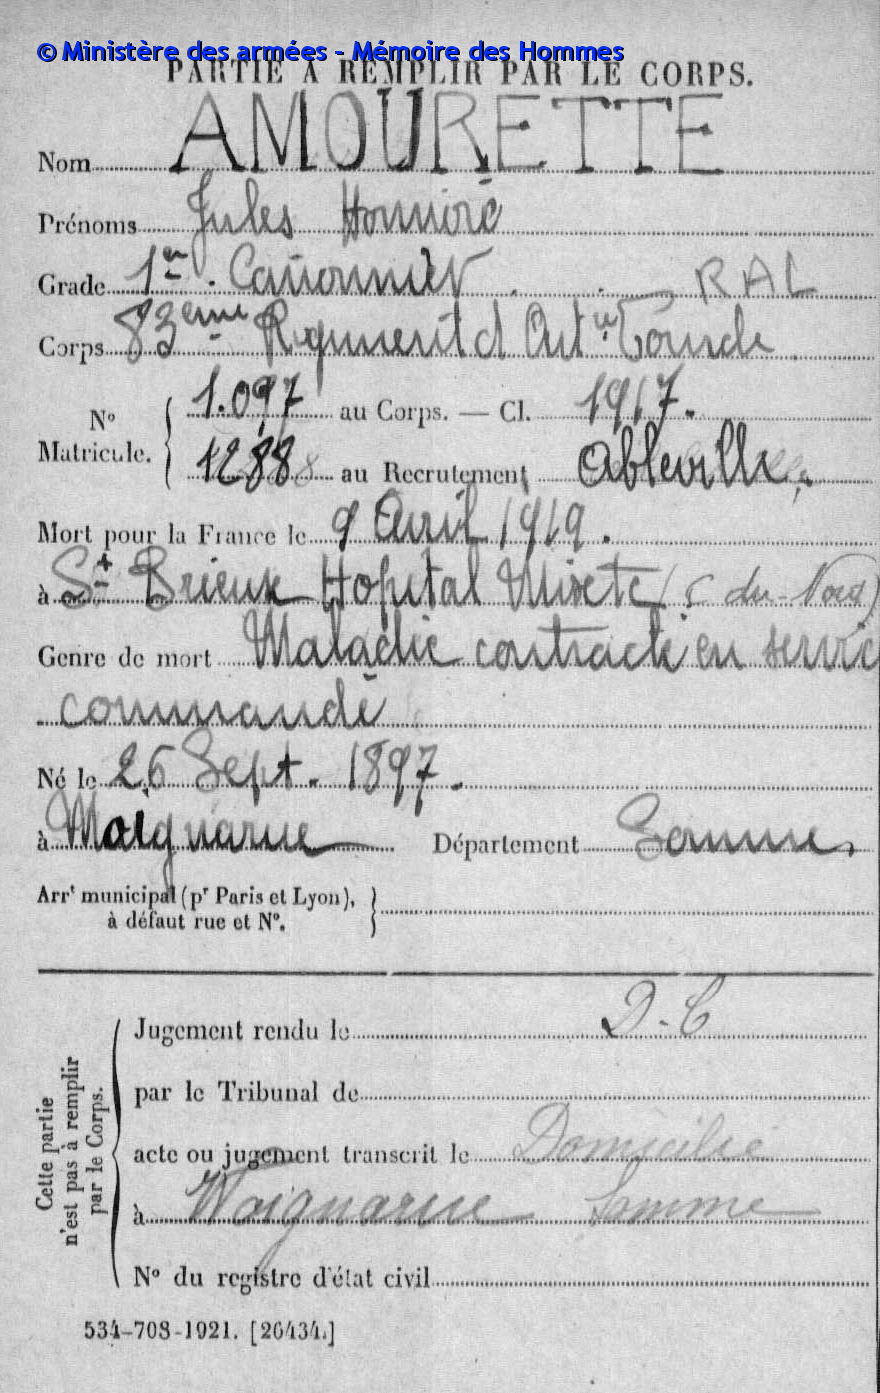 © Ministère des armées - Mémoire des Hommes
PARTIE À REMPLIR PAR LE CORPS.
Nom AMOURETTE
Prénoms Jules Honoré
Grade 1er Canonnier RAL
Corps 83eme Régiment d'Artie Lourde
No Matricule. 1.097 au Corps. — Cl. 1917.
1288 au Recrutement Abbeville
Mort pour la France le 9 Avril 1919.
à St Brieux Hopital Mixte (C. du-Nord)
Genre de mort Maladie contractée en service
commandé
Né le 26 Sept. 1897.
à Woignarue Département Somme
Arrt municipal (pr Paris et Lyon),
à défaut rue et No.
Cette partie
n'est pas à remplir
par le Corps.
Jugement rendu le D.C
par le Tribunal de
acte ou jugement transcrit le Domicilié
à Woignarue Somme
No du registre d'état civil
534-708-1921. [26434.]